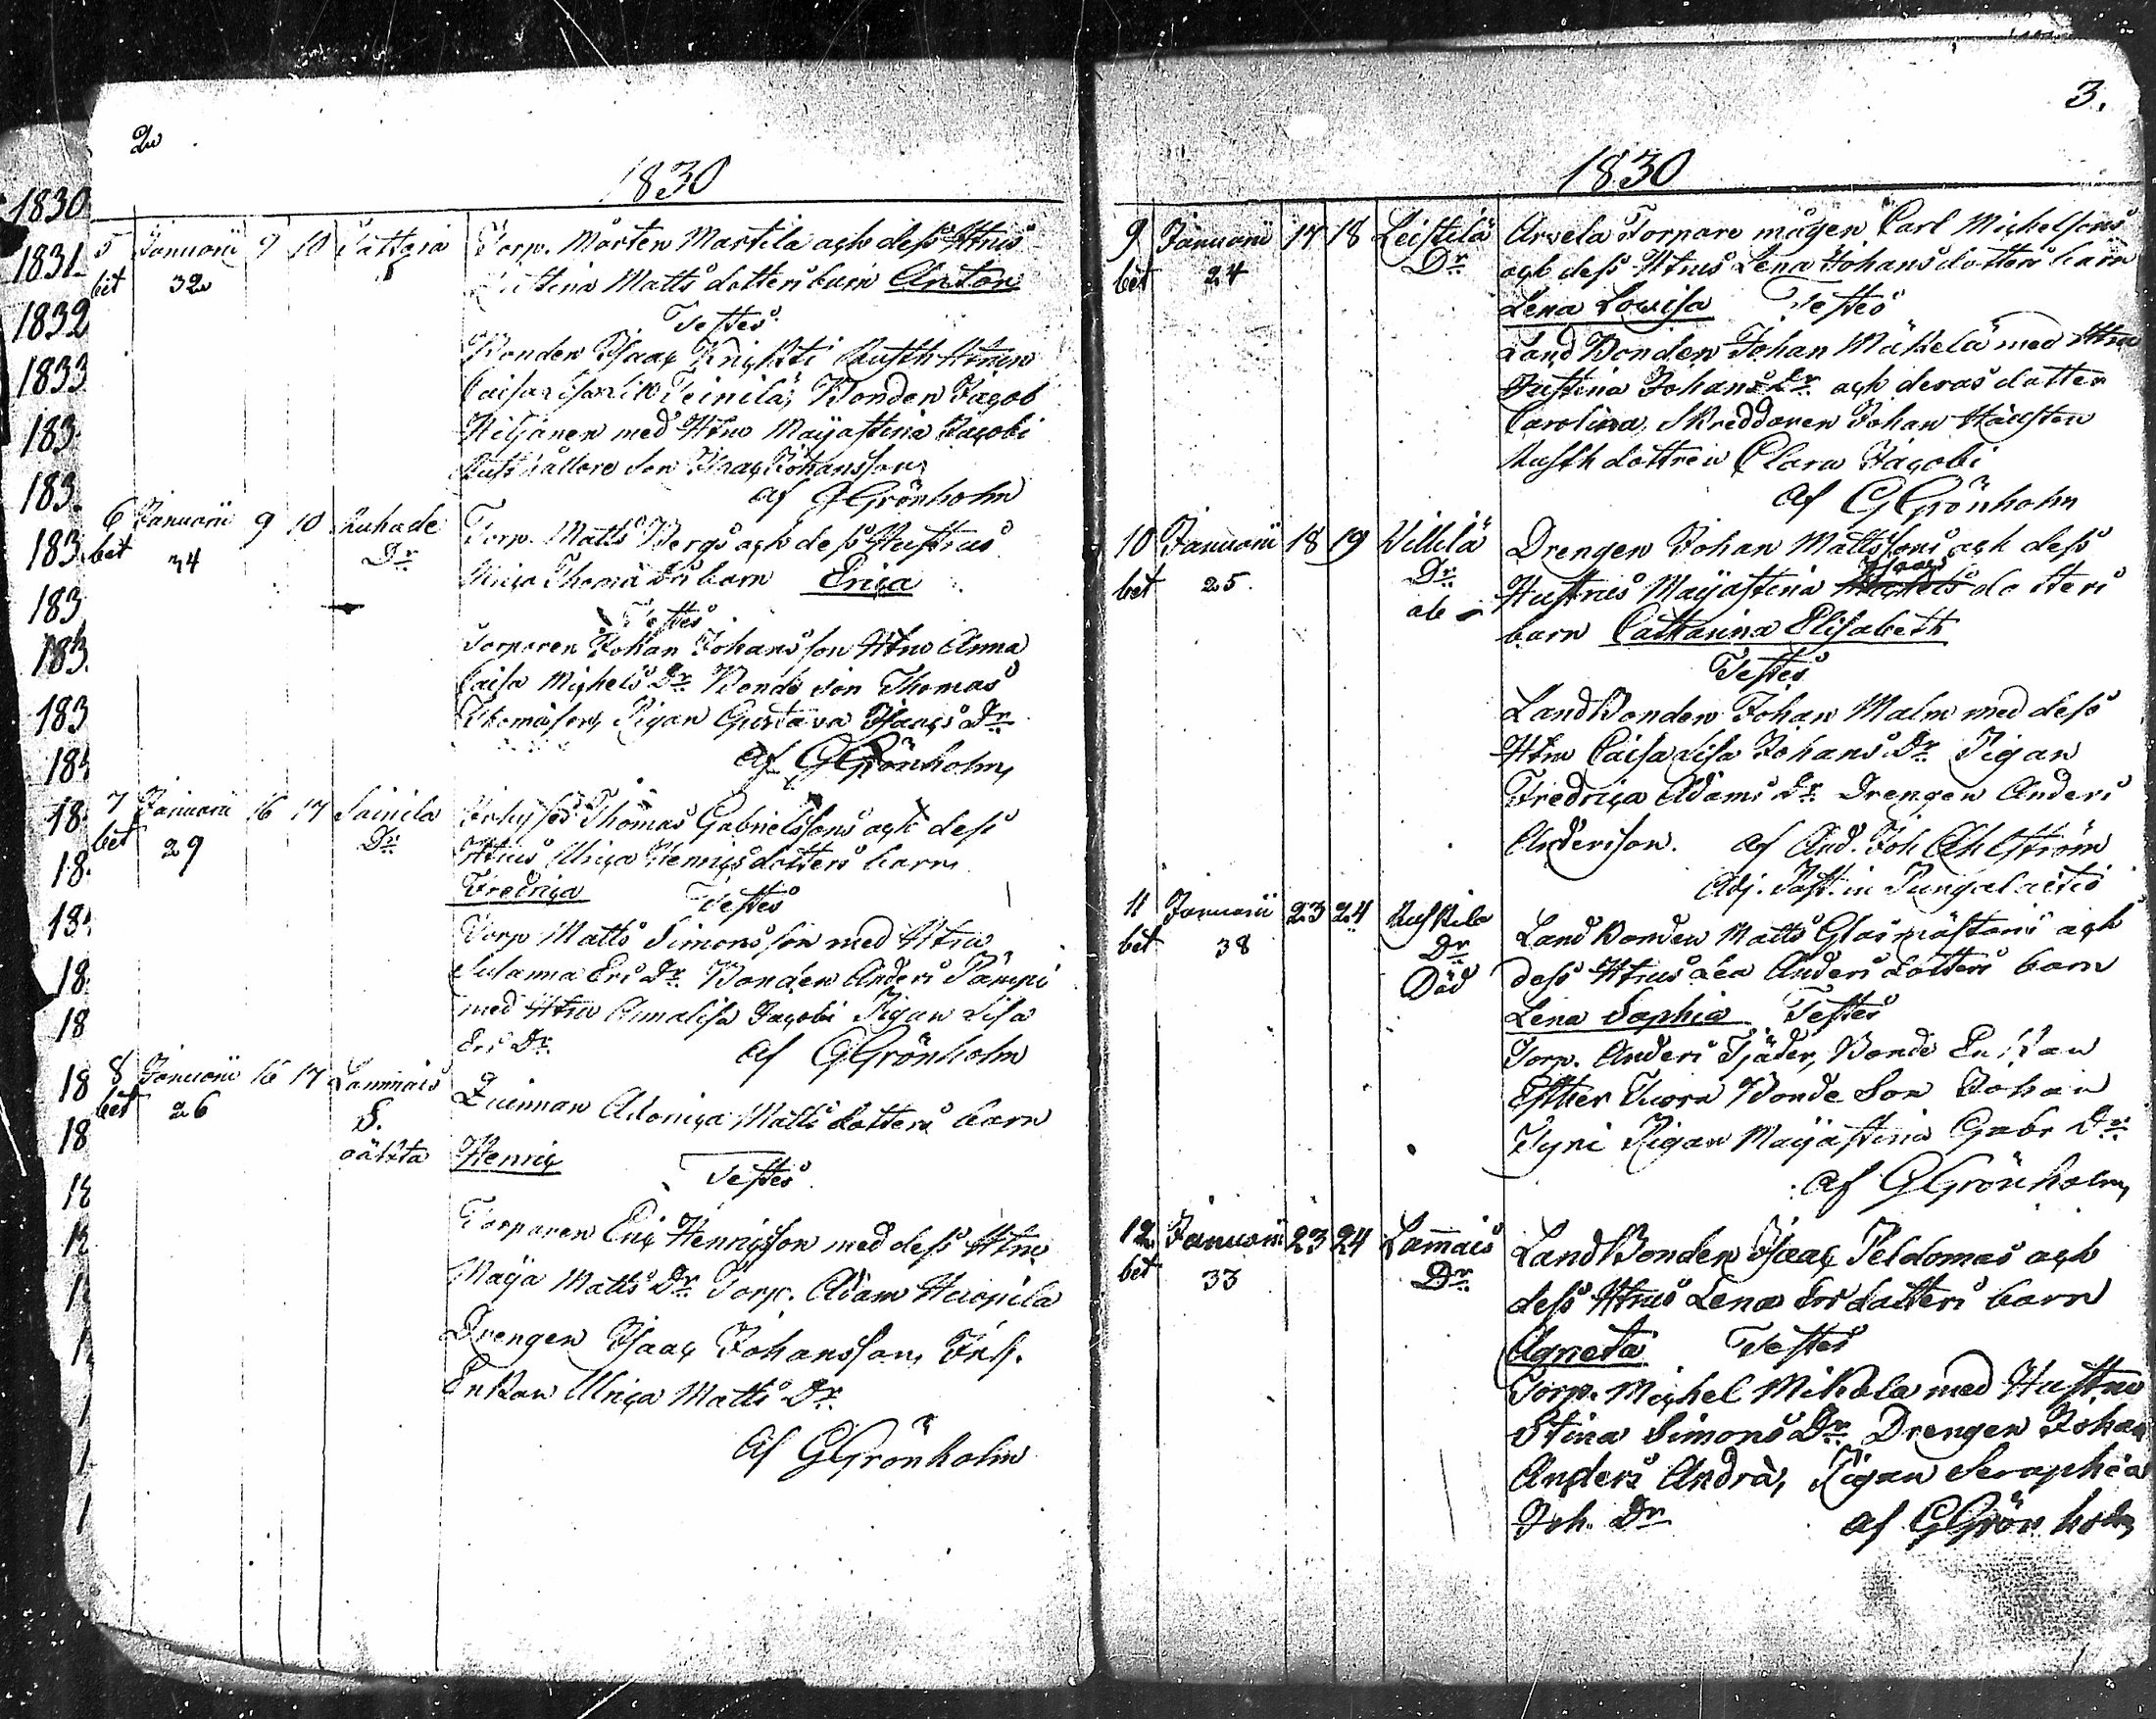 2
1830
1830
1831
1832
1833
183
183
183
183
183
183
18
18
18
18
18
18
18
18
5 Januarii 9 10 Sattoia Torp. Mårten Martila och dess Htrus
bet 32 Stina Matts dotters barn Anton
Testes
Bonden Isaac Knichti Rusth Htrun
Caisa Lisa Teinilä, Bonden Jacob
Hiljanen med Htru Majastina Jacobi
Rusthållare son Isaac Johansson
af GGrönholm
6 Januarii 9 10 Torp. Matts Bergs och dess Hustrus
bet 34 Dr Ulrica Thomæ Drs barn Erica
Testes
Torparen Johan Johansson Htru Anna
Caisa Michels Dr Bonde son Thomas
Thomasson, Pigan Gustava Isaacs Dr
af GGrönholm
7 Januarii 16 17 Sainila Thomas Gabrielssons och dess
bet 29 Dr Htrus Ulrica Henricsdotters barn
Fredrica Testes
Torp Matts Simonsson med Htru
Susanna Ers Dr Bonden Anders Pämpi
med Htru Annalisa Jacobi Pigan Lisa
Ers Dr af GGrönholm
8 Januarii 16 17 Lammais Quinnan Adonica Matts dotters barn
bet 26 S.
oäkta Henric Testes
Torparen Eric Henricsson med dess Htru
Maja Matts Dr Torp. Adam Heicpila
Drengen Isaac Johansson, Inh.
Enkan Ulrica Matts Dr
af GGrönholm
3.
1830
9 Januarii 17 18 Leistilä Arvela Torpare mågen Carl Michelsons
bet 24 Dr och dess Htrus Lena Johans dotters barn
Lena Lovisa Testes
Land Bonden Johan Mäkelä med Htru
Justina Johans Dr och deras dotter
Carolina, Skreddaren Johan Hällsten
Rusth dottren Clara Jacobi
af GGrönholm
10 Januarii 18 19 Villilä Drengen Johan Mattssons och dess
bet 25 Dr Hustrus Majastina Isaacs dotters
ab barn Catharina Elisabeth
Testes
Land Bonden Johan Malm med dess
Htru Caisa Lisa Johans Dr Pigan
Fredrica Adams Dr Drengen Anders
Andersson. af And. Joh Ahlström
Adj. Past. in Pungalaitio
11 Januarii 23 24 Ruskila Land Bonden Matts Glasmästaris och
bet 38 Dr dess Htrus Lea Anders dotters barn
Död Lena Sophia Testes
Torp. Anders Tjäder, Bonde Enkan
Esther Tuora Bonde Son Johan
Tyni Pigan Majastina Gabr Dr
af GGrönholm
12 Januarii 23 24 Lamais Land Bonden Isaac Peldomas och
bet 33 Dr dess Htrus Lena Ers dotters barn
Agneta Testes
Torp. Michel Mikola med Hustru
Stina Simons Dr Drengen Johan
Anders Andrä, Pigan Seraphia
Joh. Dr af GGrönholm